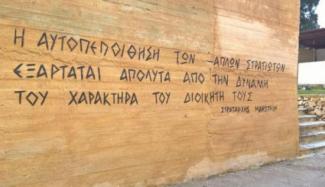 Η ΑΥΤΟΠΕΠΟΙΘΗΣΗ ΤΩΝ ΑΠΛΩΝ ΣΤΡΑΤΙΩΤΩΝ
ΕΞΑΡΤΑΤΑΙ ΑΠΟΛΥΤΑ ΑΠΟ ΤΗΝ ΔΥΝΑΜΗ
ΤΟΥ ΧΑΡΑΚΤΗΡΑ ΤΟΥ ΔΙΟΙΚΗΤΗ ΤΟΥΣ
ΣΤΡΑΤΑΡΧΗΣ